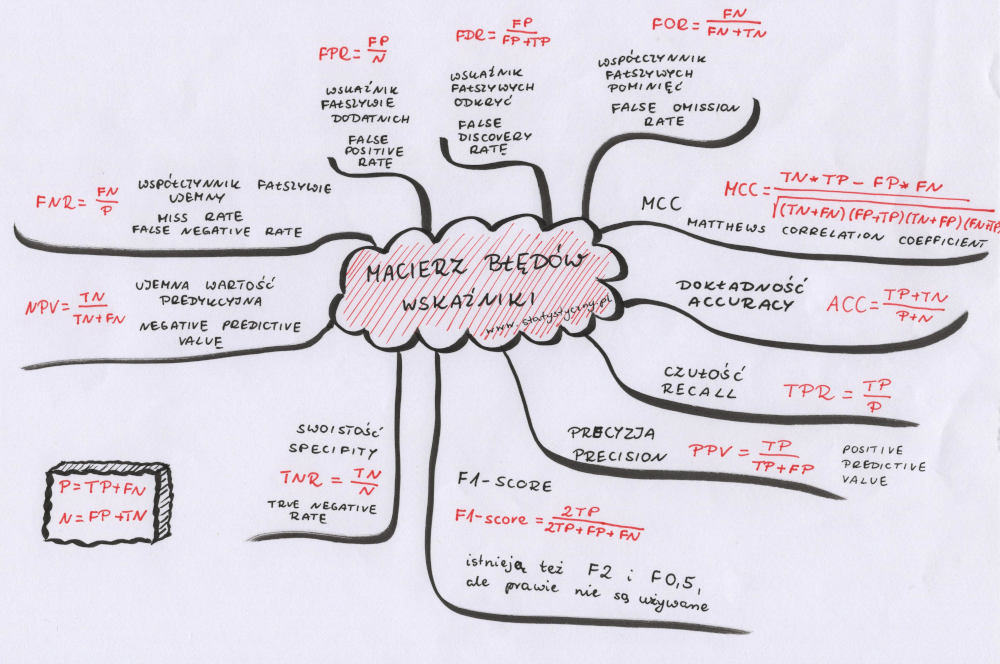 MACIERZ BŁĘDÓW
WSKAŹNIKI
www.statystyczny.pl
FPR = FP/N
WSKAŹNIK
FAŁSZYWIE
DODATNICH
FALSE
POSITIVE
RATE
FDR = FP/FP+TP
WSKAŹNIK
FAŁSZYWYCH
ODKRYĆ
FALSE
DISCOVERY
RATE
FOR = FN/FN+TN
WSPÓŁCZYNNIK
FAŁSZYWYCH
POMINIĘĆ
FALSE OMISSION
RATE
MCC
MCC = TN*TP - FP*FN/√(TN+FN)(FP+TP)(TN+FP)(FN+TP
MATTHEWS CORRELATION COEFFICIENT
DOKŁADNOŚĆ
ACCURACY
ACC = TP+TN/P+N
CZUŁOŚĆ
RECALL
TPR = TP/P
PRECYZJA
PRECISION
PPV = TP/TP+FP
POSITIVE
PREDICTIVE
VALUE
F1-SCORE
F1-score = 2TP/2TP+FP+FN
istnieją też F2 i F0,5,
ale prawie nie są używane
SWOISTOŚĆ
SPECIFITY
TNR = TN/N
TRUE NEGATIVE
RATE
UJEMNA WARTOŚĆ
PREDYKCYJNA
NPV = TN/TN+FN
NEGATIVE PREDICTIVE
VALUE
WSPÓŁCZYNNIK FAŁSZYWIE
UJEMNY
FNR = FN/P
MISS RATE
FALSE NEGATIVE RATE
P = TP+FN
N = FP+TN